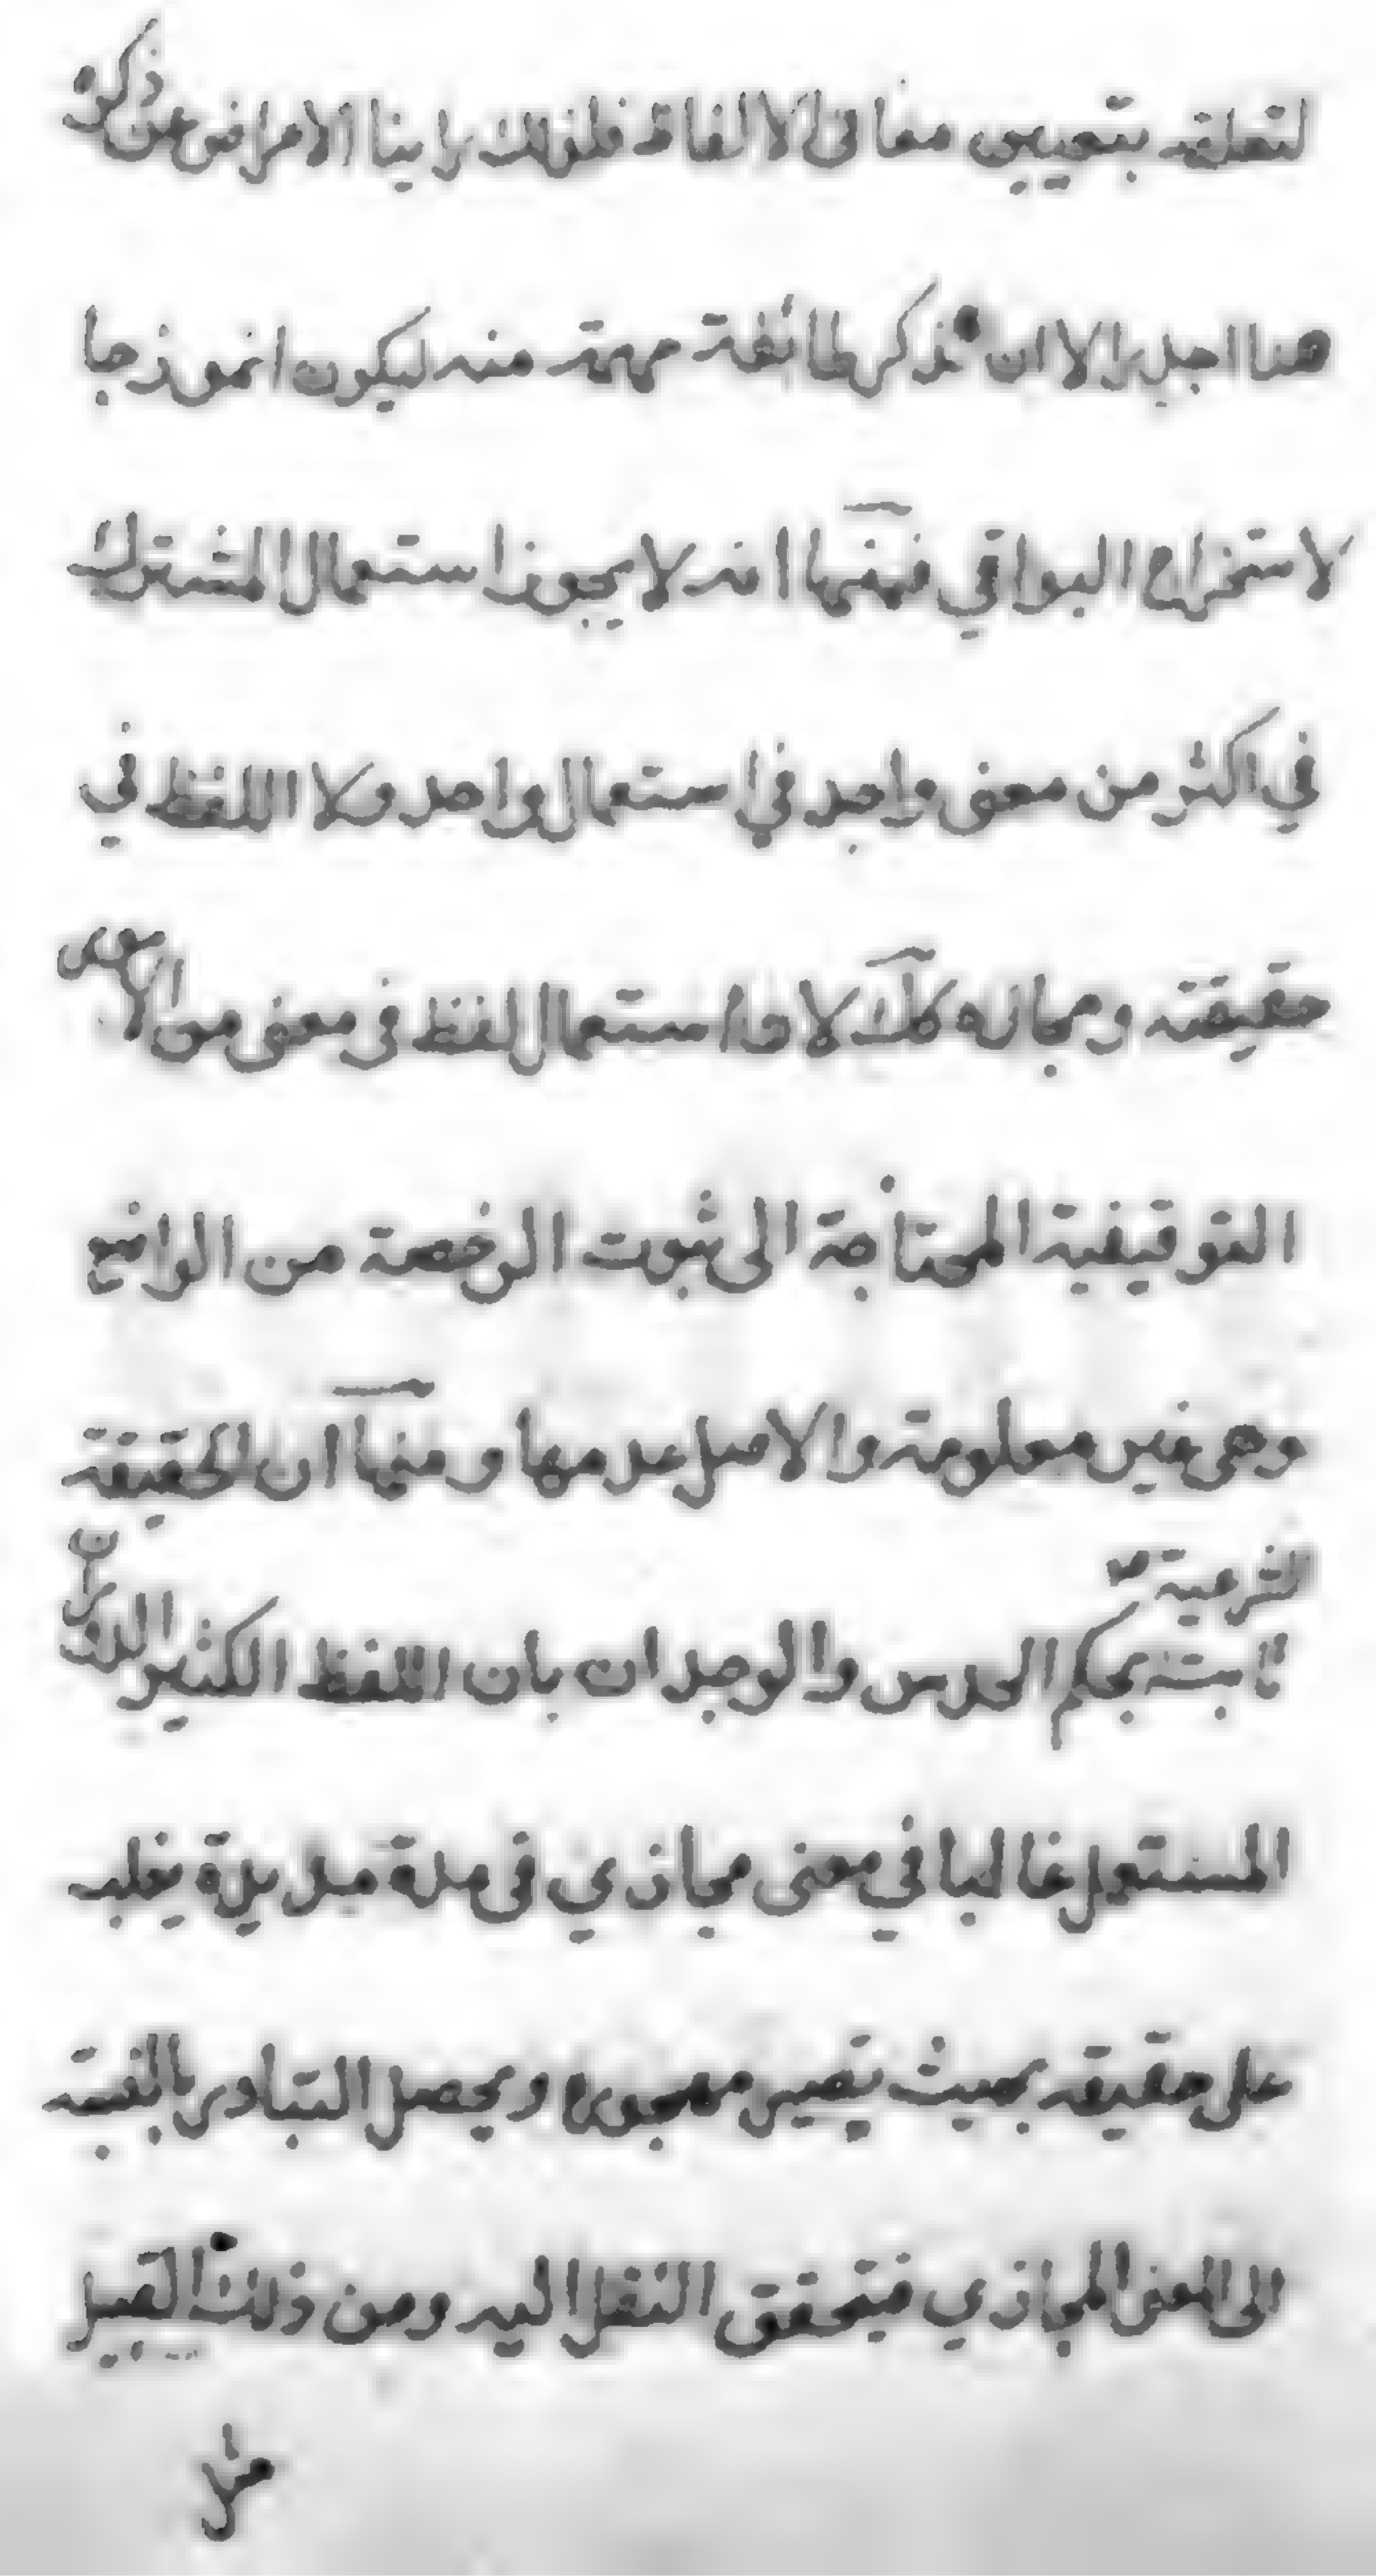 لتعلقه بتعيين معاني الالفاظ فلذلك راينا الاعراض عن ذكره
هنا اجدر الا ان نذكر طائفة مهمة منه ليكون انموذجا
لاستخراج البواقي فمنها انه لا يجوز استعمال المشترك
في اكثر من معنى واحد في استعمال واحد ولا اللفظ في
حقيقته ومجازه كك لان استعمال لفظ في معنى من الامور
التوقيفية المحتاجة الى ثبوت الرخصة من الواضع
وهي غير معلومة والاصل عدمها ومنها ان الحقيقة
الشرعية
ثابتة بحكم الحدس والوجدان بان اللفظ الكثير الدوران
المستعمل غالبا في معنى مجازي في مدة مديدة يغلبه
على حقيقته بحيث تصير مهجورة ويحصل التبادر بالنسبة
الى المعنى المجازي فيتحقق النقل اليه ومن ذلك القبيل